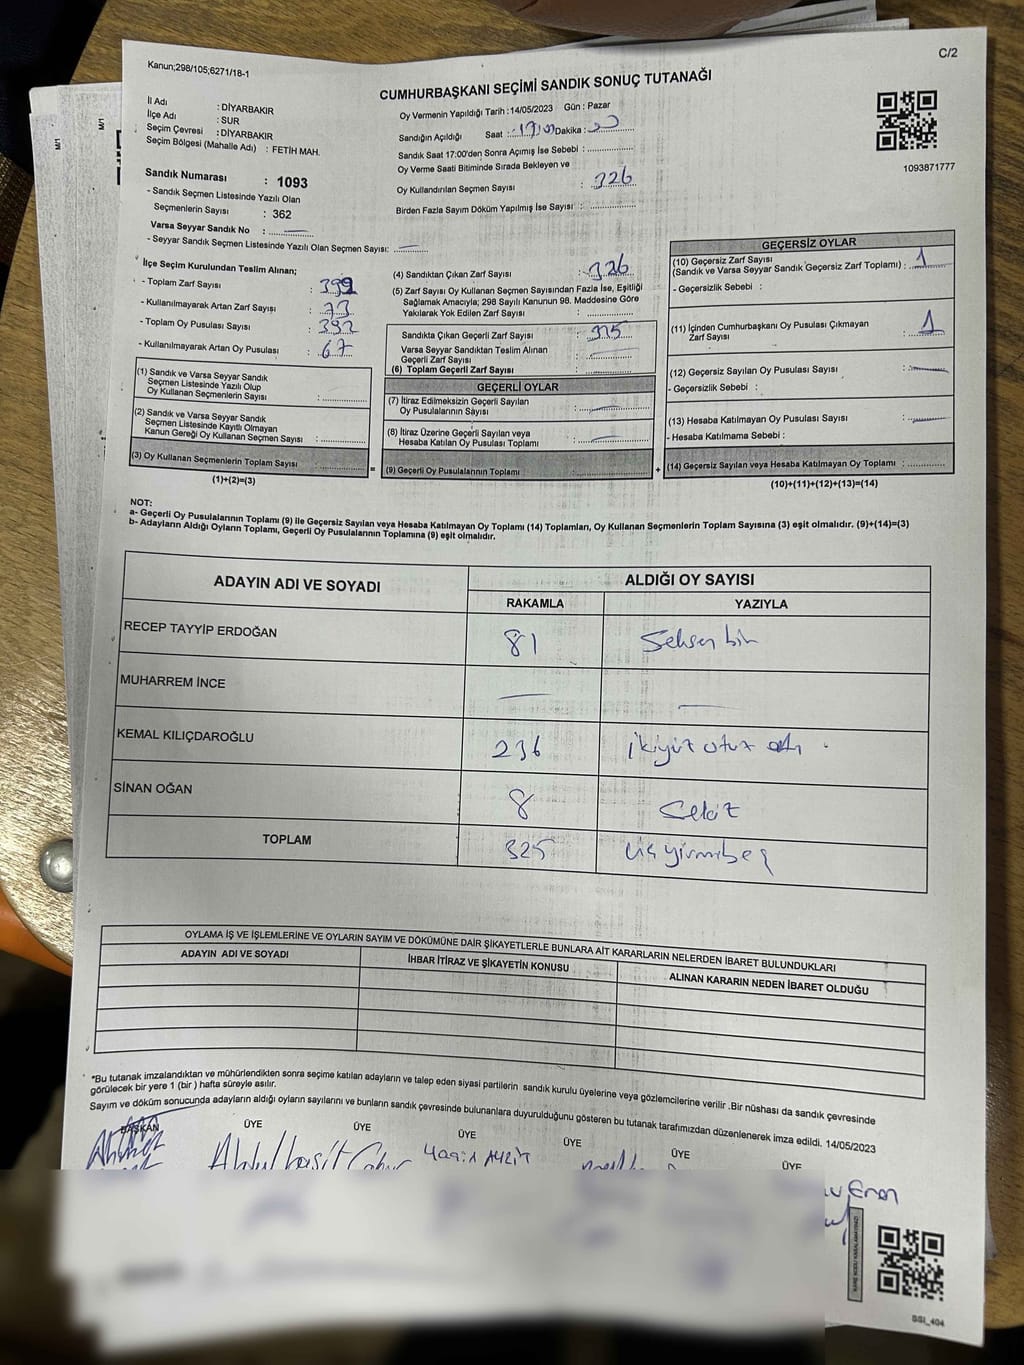 Kanun;298/105;6271/18-1
C/2
CUMHURBAŞKANI SEÇİMİ SANDIK SONUÇ TUTANAĞI
İl Adı : DİYARBAKIR
İlçe Adı : SUR
Seçim Çevresi : DİYARBAKIR
Seçim Bölgesi (Mahalle Adı) : FETİH MAH.
Sandık Numarası : 1093
- Sandık Seçmen Listesinde Yazılı Olan
Seçmenlerin Sayısı : 362
Varsa Seyyar Sandık No :
- Seyyar Sandık Seçmen Listesinde Yazılı Olan Seçmen Sayısı:
Oy Vermenin Yapıldığı Tarih : 14/05/2023 Gün : Pazar
Sandığın Açıldığı Saat : Dakika :
Sandık Saat 17:00'den Sonra Açımış İse Sebebi :
Oy Verme Saati Bitiminde Sırada Bekleyen ve
Oy Kullandırılan Seçmen Sayısı : 326
Birden Fazla Sayım Döküm Yapılmış İse Sayısı :
1093871777
İlçe Seçim Kurulundan Teslim Alınan;
- Toplam Zarf Sayısı :
- Kullanılmayarak Artan Zarf Sayısı : 73
- Toplam Oy Pusulası Sayısı :
- Kullanılmayarak Artan Oy Pusulası : 67
(1) Sandık ve Varsa Seyyar Sandık
Seçmen Listesinde Yazılı Olup
Oy Kullanan Seçmenlerin Sayısı :
(2) Sandık ve Varsa Seyyar Sandık
Seçmen Listesinde Kayıtlı Olmayan
Kanun Gereği Oy Kullanan Seçmen Sayısı :
(3) Oy Kullanan Seçmenlerin Toplam Sayısı :
(1)+(2)=(3)
(4) Sandıktan Çıkan Zarf Sayısı : 326
(5) Zarf Sayısı Oy Kullanan Seçmen Sayısından Fazla İse, Eşitliği
Sağlamak Amacıyla; 298 Sayılı Kanunun 98. Maddesine Göre
Yakılarak Yok Edilen Zarf Sayısı :
Sandıkta Çıkan Geçerli Zarf Sayısı : 325
Varsa Seyyar Sandıktan Teslim Alınan
Geçerli Zarf Sayısı :
(6) Toplam Geçerli Zarf Sayısı :
GEÇERLİ OYLAR
(7) İtiraz Edilmeksizin Geçerli Sayılan
Oy Pusulalarının Sayısı :
(8) İtiraz Üzerine Geçerli Sayılan veya
Hesaba Katılan Oy Pusulası Toplamı :
(9) Geçerli Oy Pusulalarının Toplamı :
=
+
GEÇERSİZ OYLAR
(10) Geçersiz Zarf Sayısı
(Sandık ve Varsa Seyyar Sandık Geçersiz Zarf Toplamı) : 1
- Geçersizlik Sebebi :
(11) İçinden Cumhurbaşkanı Oy Pusulası Çıkmayan
Zarf Sayısı : 1
(12) Geçersiz Sayılan Oy Pusulası Sayısı :
- Geçersizlik Sebebi :
(13) Hesaba Katılmayan Oy Pusulası Sayısı :
- Hesaba Katılmama Sebebi :
(14) Geçersiz Sayılan veya Hesaba Katılmayan Oy Toplamı :
(10)+(11)+(12)+(13)=(14)
NOT:
a- Geçerli Oy Pusulalarının Toplamı (9) ile Geçersiz Sayılan veya Hesaba Katılmayan Oy Toplamı (14) Toplamları, Oy Kullanan Seçmenlerin Toplam Sayısına (3) eşit olmalıdır. (9)+(14)=(3)
b- Adayların Aldığı Oyların Toplamı, Geçerli Oy Pusulalarının Toplamına (9) eşit olmalıdır.
ADAYIN ADI VE SOYADI
ALDIĞI OY SAYISI
RAKAMLA
YAZIYLA
RECEP TAYYİP ERDOĞAN 81 Seksen bir
MUHARREM İNCE
KEMAL KILIÇDAROĞLU 236 ikiyüz otuz altı
SİNAN OĞAN 8 Sekiz
TOPLAM 325 üç yirmibeş
OYLAMA İŞ VE İŞLEMLERİNE VE OYLARIN SAYIM VE DÖKÜMÜNE DAİR ŞİKAYETLERLE BUNLARA AİT KARARLARIN NELERDEN İBARET BULUNDUKLARI
ADAYIN ADI VE SOYADI
İHBAR İTİRAZ VE ŞİKAYETİN KONUSU
ALINAN KARARIN NEDEN İBARET OLDUĞU
*Bu tutanak imzalandıktan ve mühürlendikten sonra seçime katılan adayların ve talep eden siyasi partilerin sandık kurulu üyelerine veya gözlemcilerine verilir .Bir nüshası da sandık çevresinde
görülecek bir yere 1 (bir ) hafta süreyle asılır.
Sayım ve döküm sonucunda adayların aldığı oyların sayılarını ve bunların sandık çevresinde bulunanlara duyurulduğunu gösteren bu tutanak tarafımızdan düzenlenerek imza edildi. 14/05/2023
BAŞKAN ÜYE ÜYE ÜYE ÜYE ÜYE ÜYE
Ahmet Abdulbasit
Eren
SSI_404
M/1
M/1